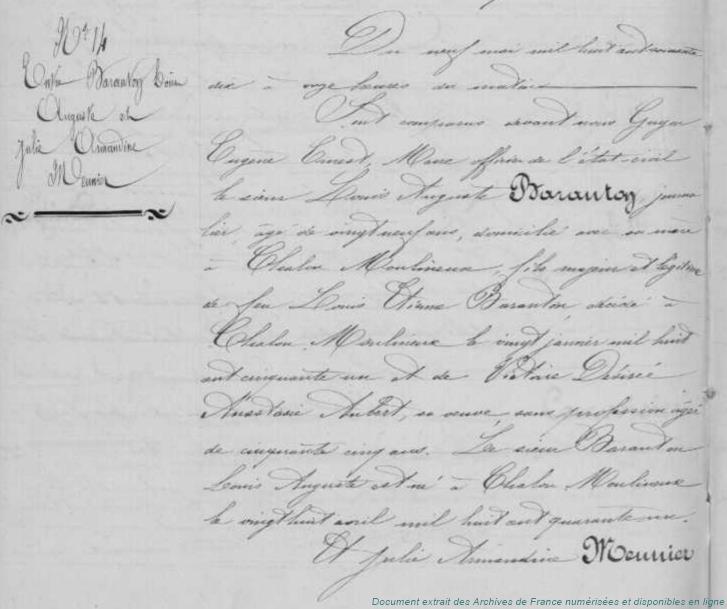 N° 14
Entre Baranton Louis
Auguste et
Julie Armandine
Meunier
Du neuf mai mil huit cent soixante
dix à onze heures du matin
Sont comparus devant nous Guyar
Eugène Ernest, Maire officier de l'état-civil
le sieur Louis Auguste Baranton journa
lier, âgé de vingt neuf ans, domicilié avec sa mère
à Chalou Moulineux, fils majeur et légitime
de feu Louis Etienne Baranton, décédé à
Chalou Moulineux le vingt janvier mil huit
cent cinquante un et de Victoire Désirée
Anastasie Aubert, sa veuve, sans profession âgée
de cinquante cinq ans. Le sieur Baranton
Louis Auguste est né à Chalou Moulineux
le vingt huit avril mil huit cent quarante un.
Et Julie Armandine Meunier
Document extrait des Archives de France numérisées et disponibles en ligne